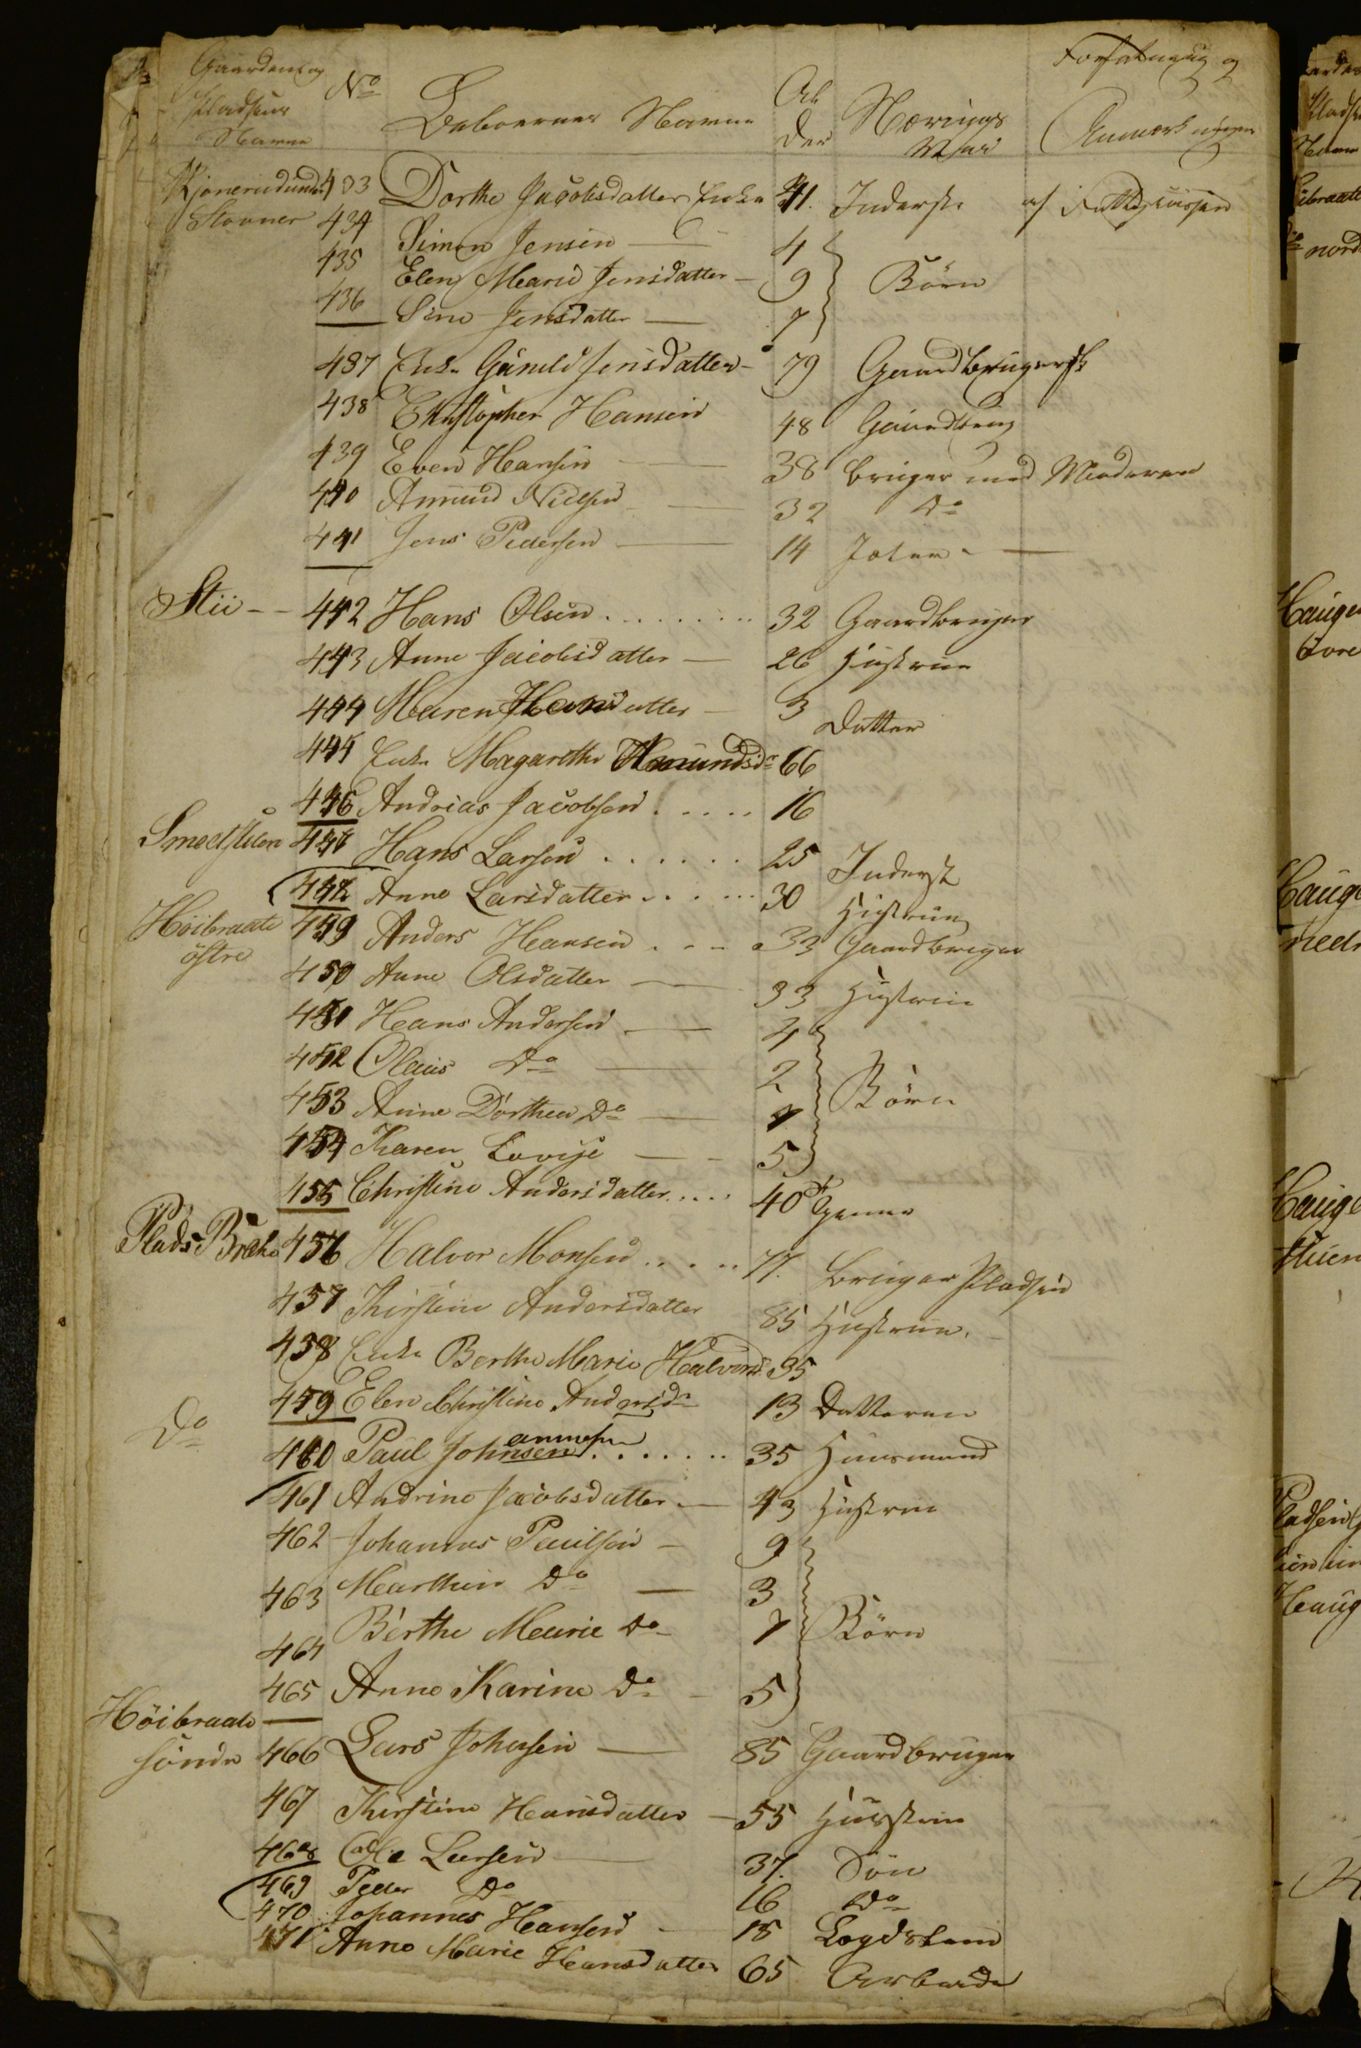 Gaardens og Pladsens Navne No Beboernes Navne Alder Nærings Vei Forfatning og Anmærkninger
433 Dorthe Jacobsdatter Enke 41. Inderste af Fattigcassen
Stovner 434 Simon Jensen 4
435 Elen Marie Jensdatter 9 Börn
436 Sine Jensdatter 7
437 Enke Gunild Jensdatter 79 Gaardbrugersk
438 Christopher Hansen 48 Gaardbrug
439 Even Hansen 38 bruger med Moderen
440 Amund Nielsen 32 Do
441 Jens Pedersen 14
Stii 442 Hans Olsen 32 Gaardbruger
443 Anne Jacobsdatter 26 Hustrue
444 Maren Hansdatter 3 Datter
445 Enke Magarethe Amundsdr 66
446 Andreas Jacobsen 16
Hans Larsen 25 Inderst
Anne Larsdatter 30 Hustrue
Höibraate östre 449 Anders Hansen 33 Gaardbruger
450 Anne Olsdatter 33 Hustrue
451 Hans Andersen 4
452 Olaus Do 2 Börn
453 Anne Dorthea Do 7
454 Karen Lovise 5
455 Christine Andersdatter 40
Plads Bråthe 456 Halvor Monsen 77. bruger Pladsen
457 Kirstine Andersdatter 85 Hustrue.
458 Enke Berthe Marie Halvorsd 35
459 Elen Christine Andersdr 13 Datteren
Do 460 Paul Johnsen 35 Huusmand
461 Andrine Jacobsdatter 43 Hustrue
462 Johannes Paulsen 9
463 Marthin Do 3
464 Berthe Marie Do 7 Börn
465 Anne Karine Do 5
Höibraate söndre 466 Lars Johnsen 85 Gaardbruger
467 Kirstine Hansdatter 55 Hustrue
468 Ole Larsen 37. Sön
469 Peder Do 16 Do
470 Johannes Hansen 18 Lægdslem
471 Anne Marie Hansdatter 65 Arbeide
Hauge
Hauge
Hauge